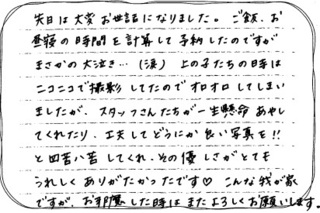 先日は大変お世話になりました。ご飯、お
昼寝の時間を計算して予約したのですが
まさかの大泣き…(涙) 上の子たちの時は
ニコニコで撮影してたのでオロオロしてしまい
ましたが、スタッフさんたちが一生懸命あやし
てくれたり、工夫してどうにか良い写真を!!
と四苦八苦してくれ、その優しさがとても
うれしくありがたかったです♡ こんな我が家
ですが、お邪魔した時はまたよろしくお願いします。